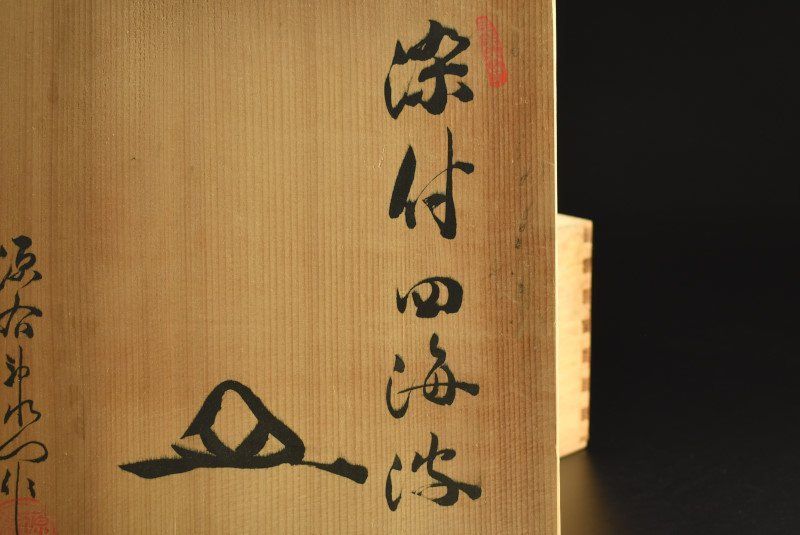 染付四海波
皿
源右衛門作